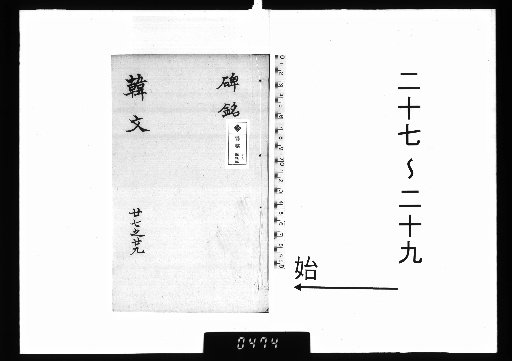 二十七〜二十九
始
碑銘
韓文
廿七之廿九
0474